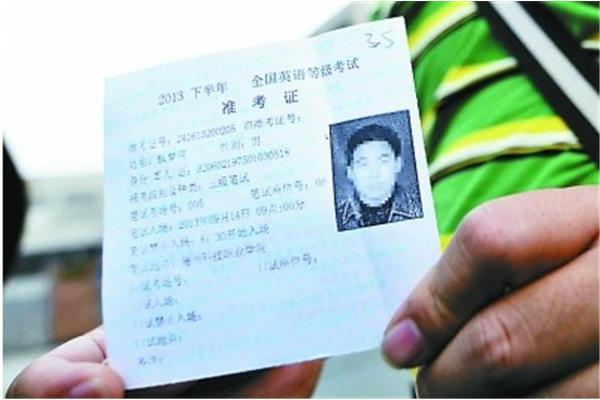 35
2013 下半年 全国英语等级考试
准考证
准考证号: 241613200205 旧准考证号:
姓名: 性别: 男
身份
报考级别及种类: 三级笔试
笔试考场号: 005 笔试座位号: 06
笔试入场: 2013年09月14日 09点:00分
笔试禁止入场: 9: 30开始入场
笔试地点: 科技职业学院
口试考场号: 口试座位号:
口试入场:
口试禁止入场:
口试地点:
备注: